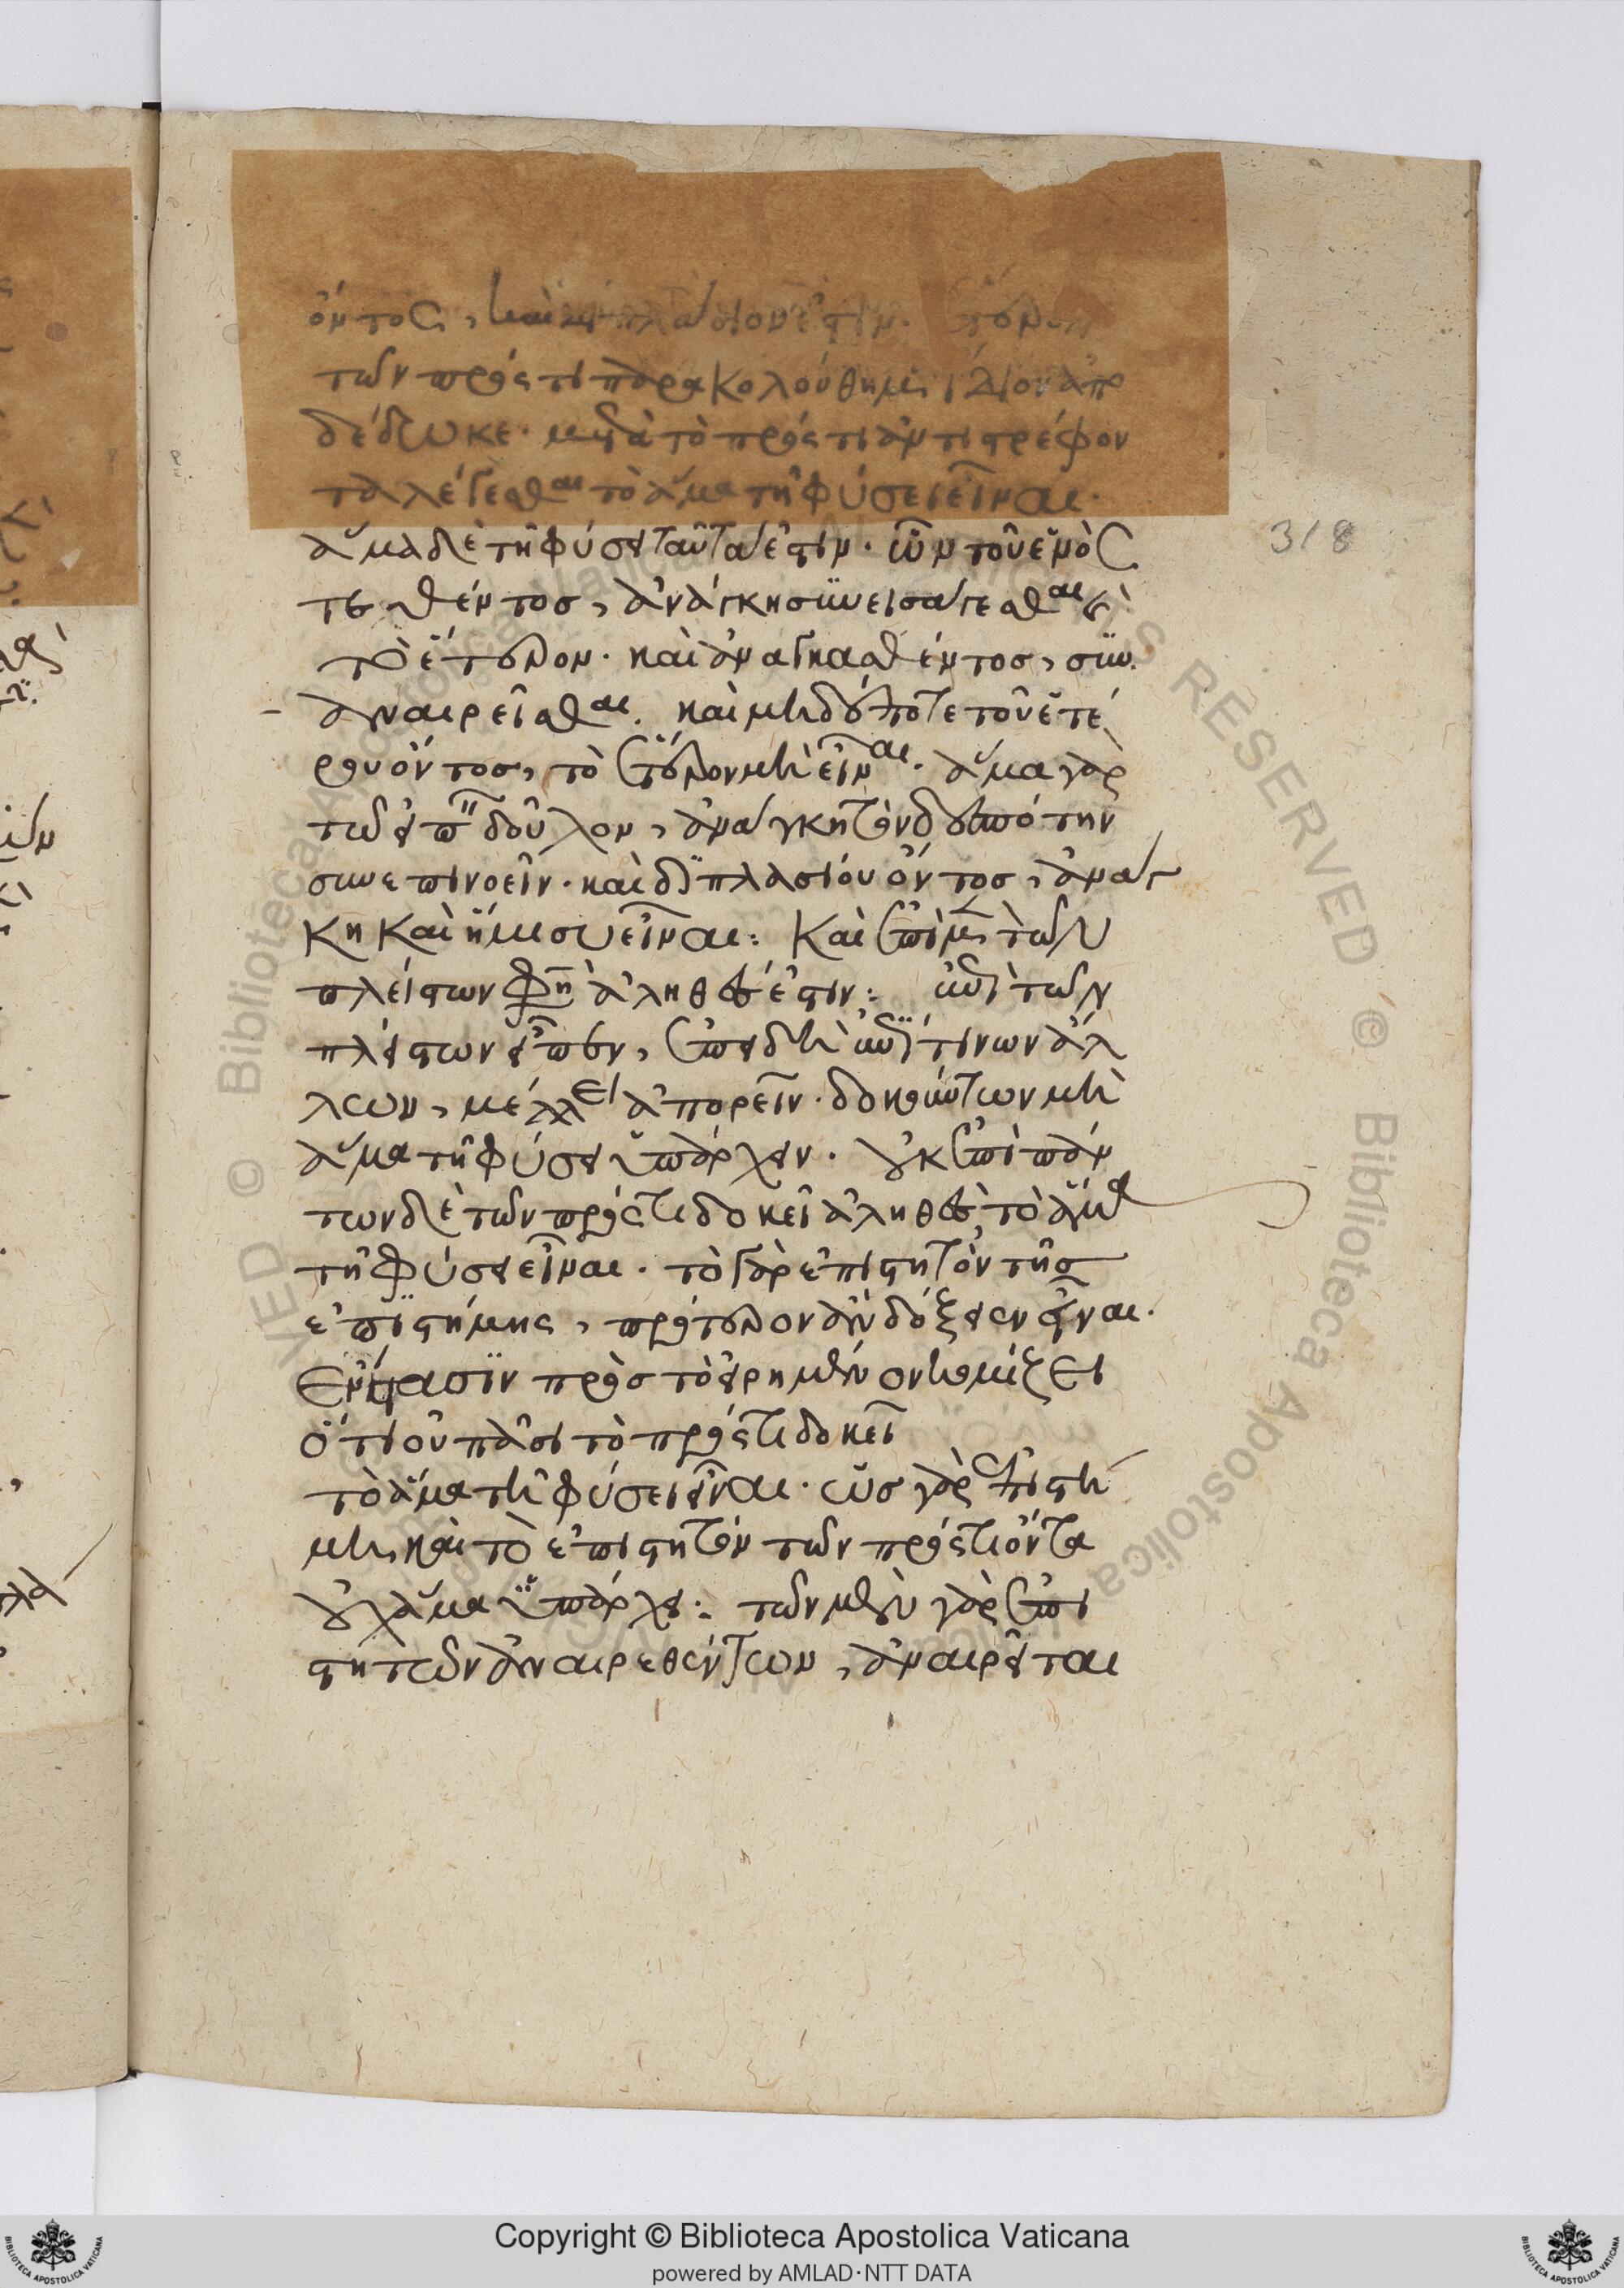 ὄντος, καὶ διπλάσιον ἐστιν. ἕτερον
τῶν πρός τι παρακολούθημα ἴδιον ἀπο
δέδωκε· μετὰ τὸ πρός τι ἀντιστρέφον
τα λέγεσθαι τὸ ἅμα τῇ φύσει εἶναι.
ἅμα δὲ τῇ φύσει ταῦτα ἐστιν· ὧν τοῦ ἑνὸς
τεθέντος, ἀνάγκη συνεισάγεσθαι καὶ
τὸ ἕτερον· καὶ ἀνασκευασθέντος, συν
αναιρεῖσθαι. καὶ μηδέποτε τοῦ ἑτέ
ρου ὄντος, τὸ ἕτερον μὴ εἶναι. ἅμα γὰρ
τῷ εἰπεῖν δοῦλον, ἀνάγκη τὸν δεσπότην
συνεπινοεῖν. καὶ διπλασίου ὄντος, ἀνάγ
κη καὶ ἥμισυ εἶναι: καὶ ἐπὶ μὲν τῶν
πλείστων φησὶν ἀληθές ἐστιν: ἐπὶ τῶν
πλείστων εἶπεν, ἐπειδὴ ἐπί τινων ἄλ
λων, μέλλει ἀπορεῖν. δοκούντων μὴ
ἅμα τῇ φύσει ὑπάρχειν. οὐκ ἐπὶ πάν
των δὲ τῶν πρός τι δοκεῖ ἀληθὲς τὸ ἅμα
τῇ φύσει εἶναι. τὸ γὰρ ἐπιστητὸν τῆς
ἐπιστήμης, πρότερον ἂν δόξειεν εἶναι.
ἔνστασιν πρὸς τὸ εἰρημένον κομίζει
ὅτι οὐ πᾶσι τὸ πρός τι δοκεῖ
τὸ ἅμα τῇ φύσει εἶναι. ὡς γὰρ ἐπιστή
μη, καὶ τὸ ἐπιστητὸν τῶν πρός τι ὄντα
οὐχ ἅμα ὑπάρχει: τῶν μὲν γὰρ ἐπι
στητῶν ἀναιρεθέντων, ἀναιρεῖται
318
Copyright © Biblioteca Apostolica Vaticana
powered by AMLAD·NTT DATA